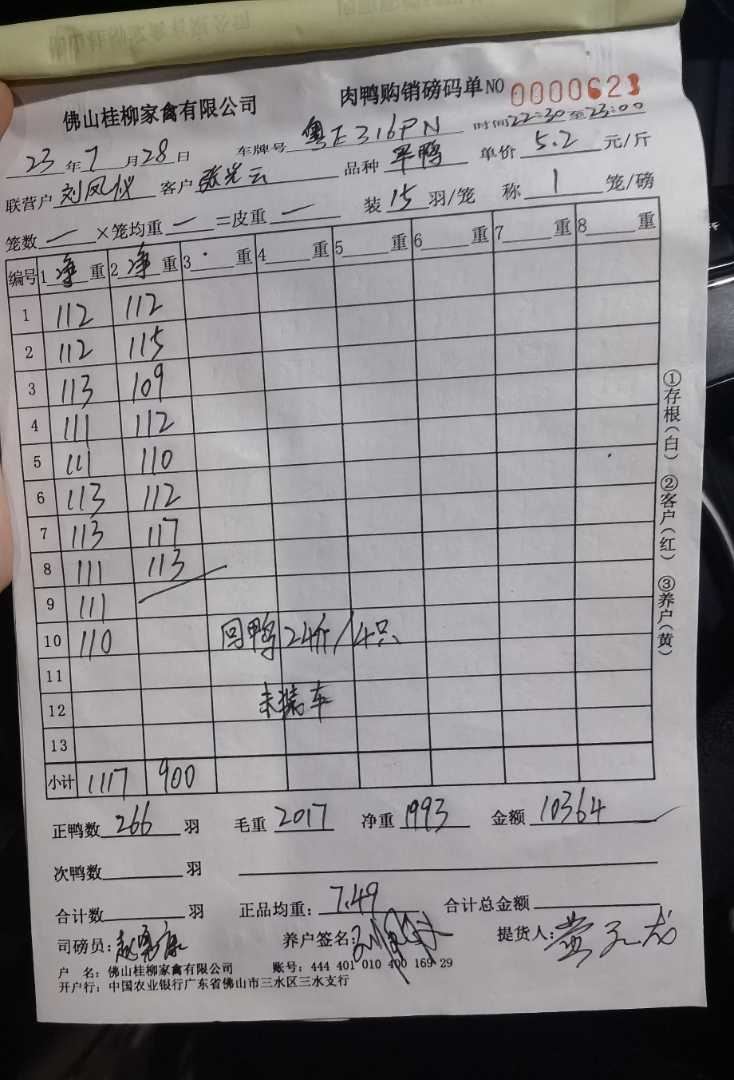 佛山桂柳家禽有限公司 肉鸭购销磅码单 NO 0000623
23 年 7 月 28 日 车牌号 粤E316PN 时间 22:30 至 23:00
联营户 刘凤仪 客户 张光云 品种 平鸭 单价 5.2 元/斤
笼数 — ×笼均重 — =皮重 — 装 15 羽/笼 称 1 笼/磅
编号 1 净 重 2 净 重 3 重 4 重 5 重 6 重 7 重 8 重
1 112 112
2 112 115
3 113 109
4 111 112
5 111 110
6 113 112
7 113 117
8 111 113
9 111
10 110 回鸭 24斤/4只
11
12 未装车
13
小计 1117 900
正鸭数 266 羽 毛重 2017 净重 1993 金额 10364
次鸭数 羽
合计数 羽 正品均重: 7.49 合计总金额
司磅员: 养户签名: 提货人:
户 名: 佛山桂柳家禽有限公司 账号: 444 401 010 400 169 29
开户行: 中国农业银行广东省佛山市三水区三水支行
①存根(白) ②客户(红) ③养户(黄)